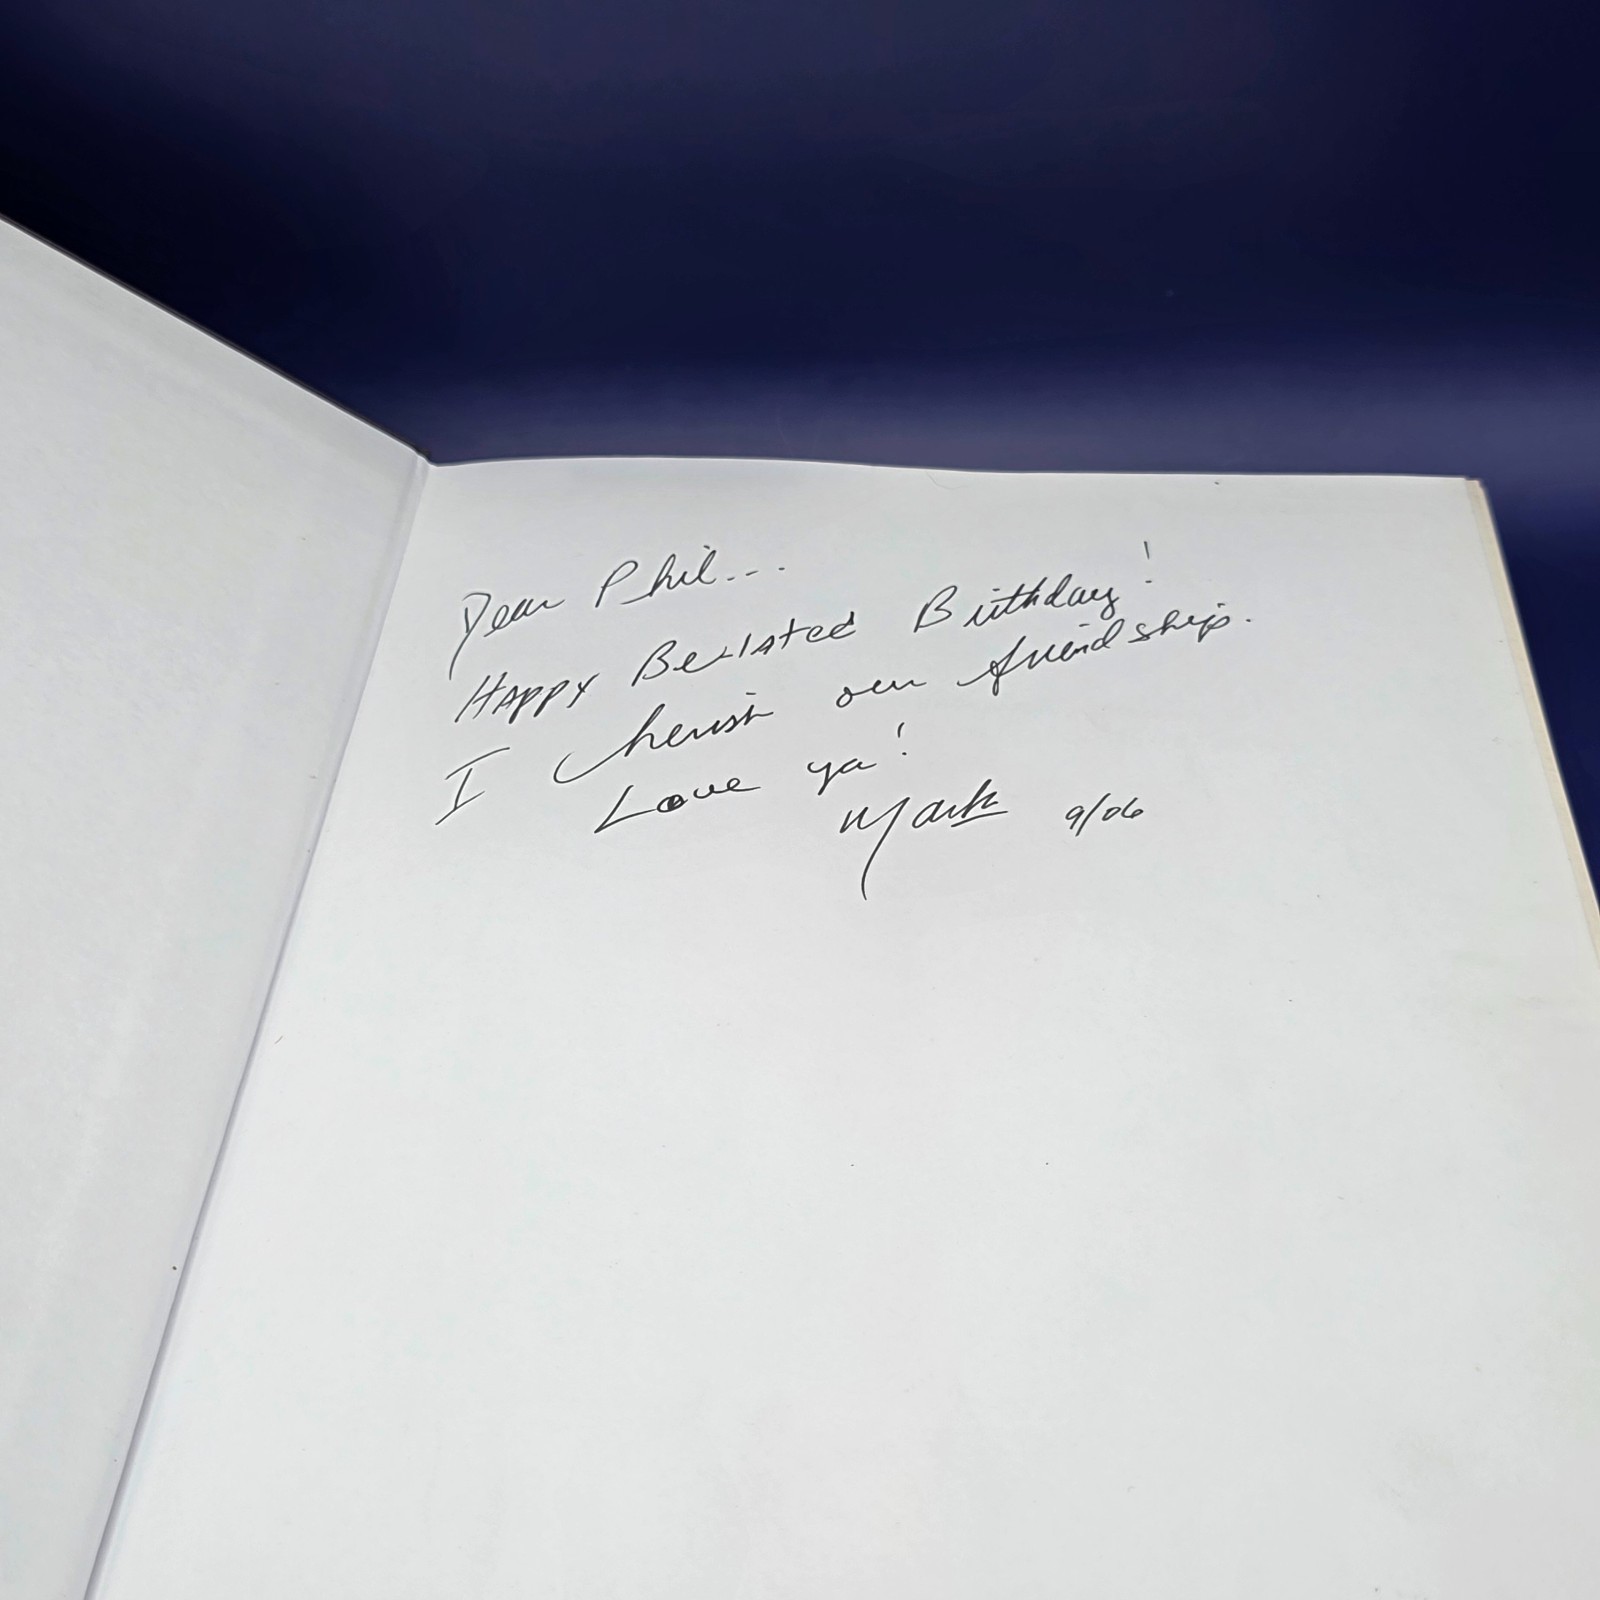 Dear Phil...
Happy Be-lated Birthday!
I cherish our friendship.
Love ya!
Mark 9/06